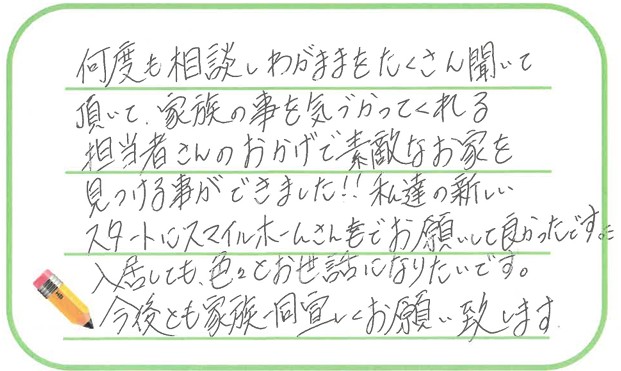 何度も相談しわがままをたくさん聞いて
頂いて、家族の事を気づかってくれる
担当者さんのおかげで素敵なお家を
見つける事ができました!! 私達の新しい
スタートにスマイルホームさんでお願いして良かったです。
入居しても、色々とお世話になりたいです。
今後とも家族一同宜しくお願い致します。